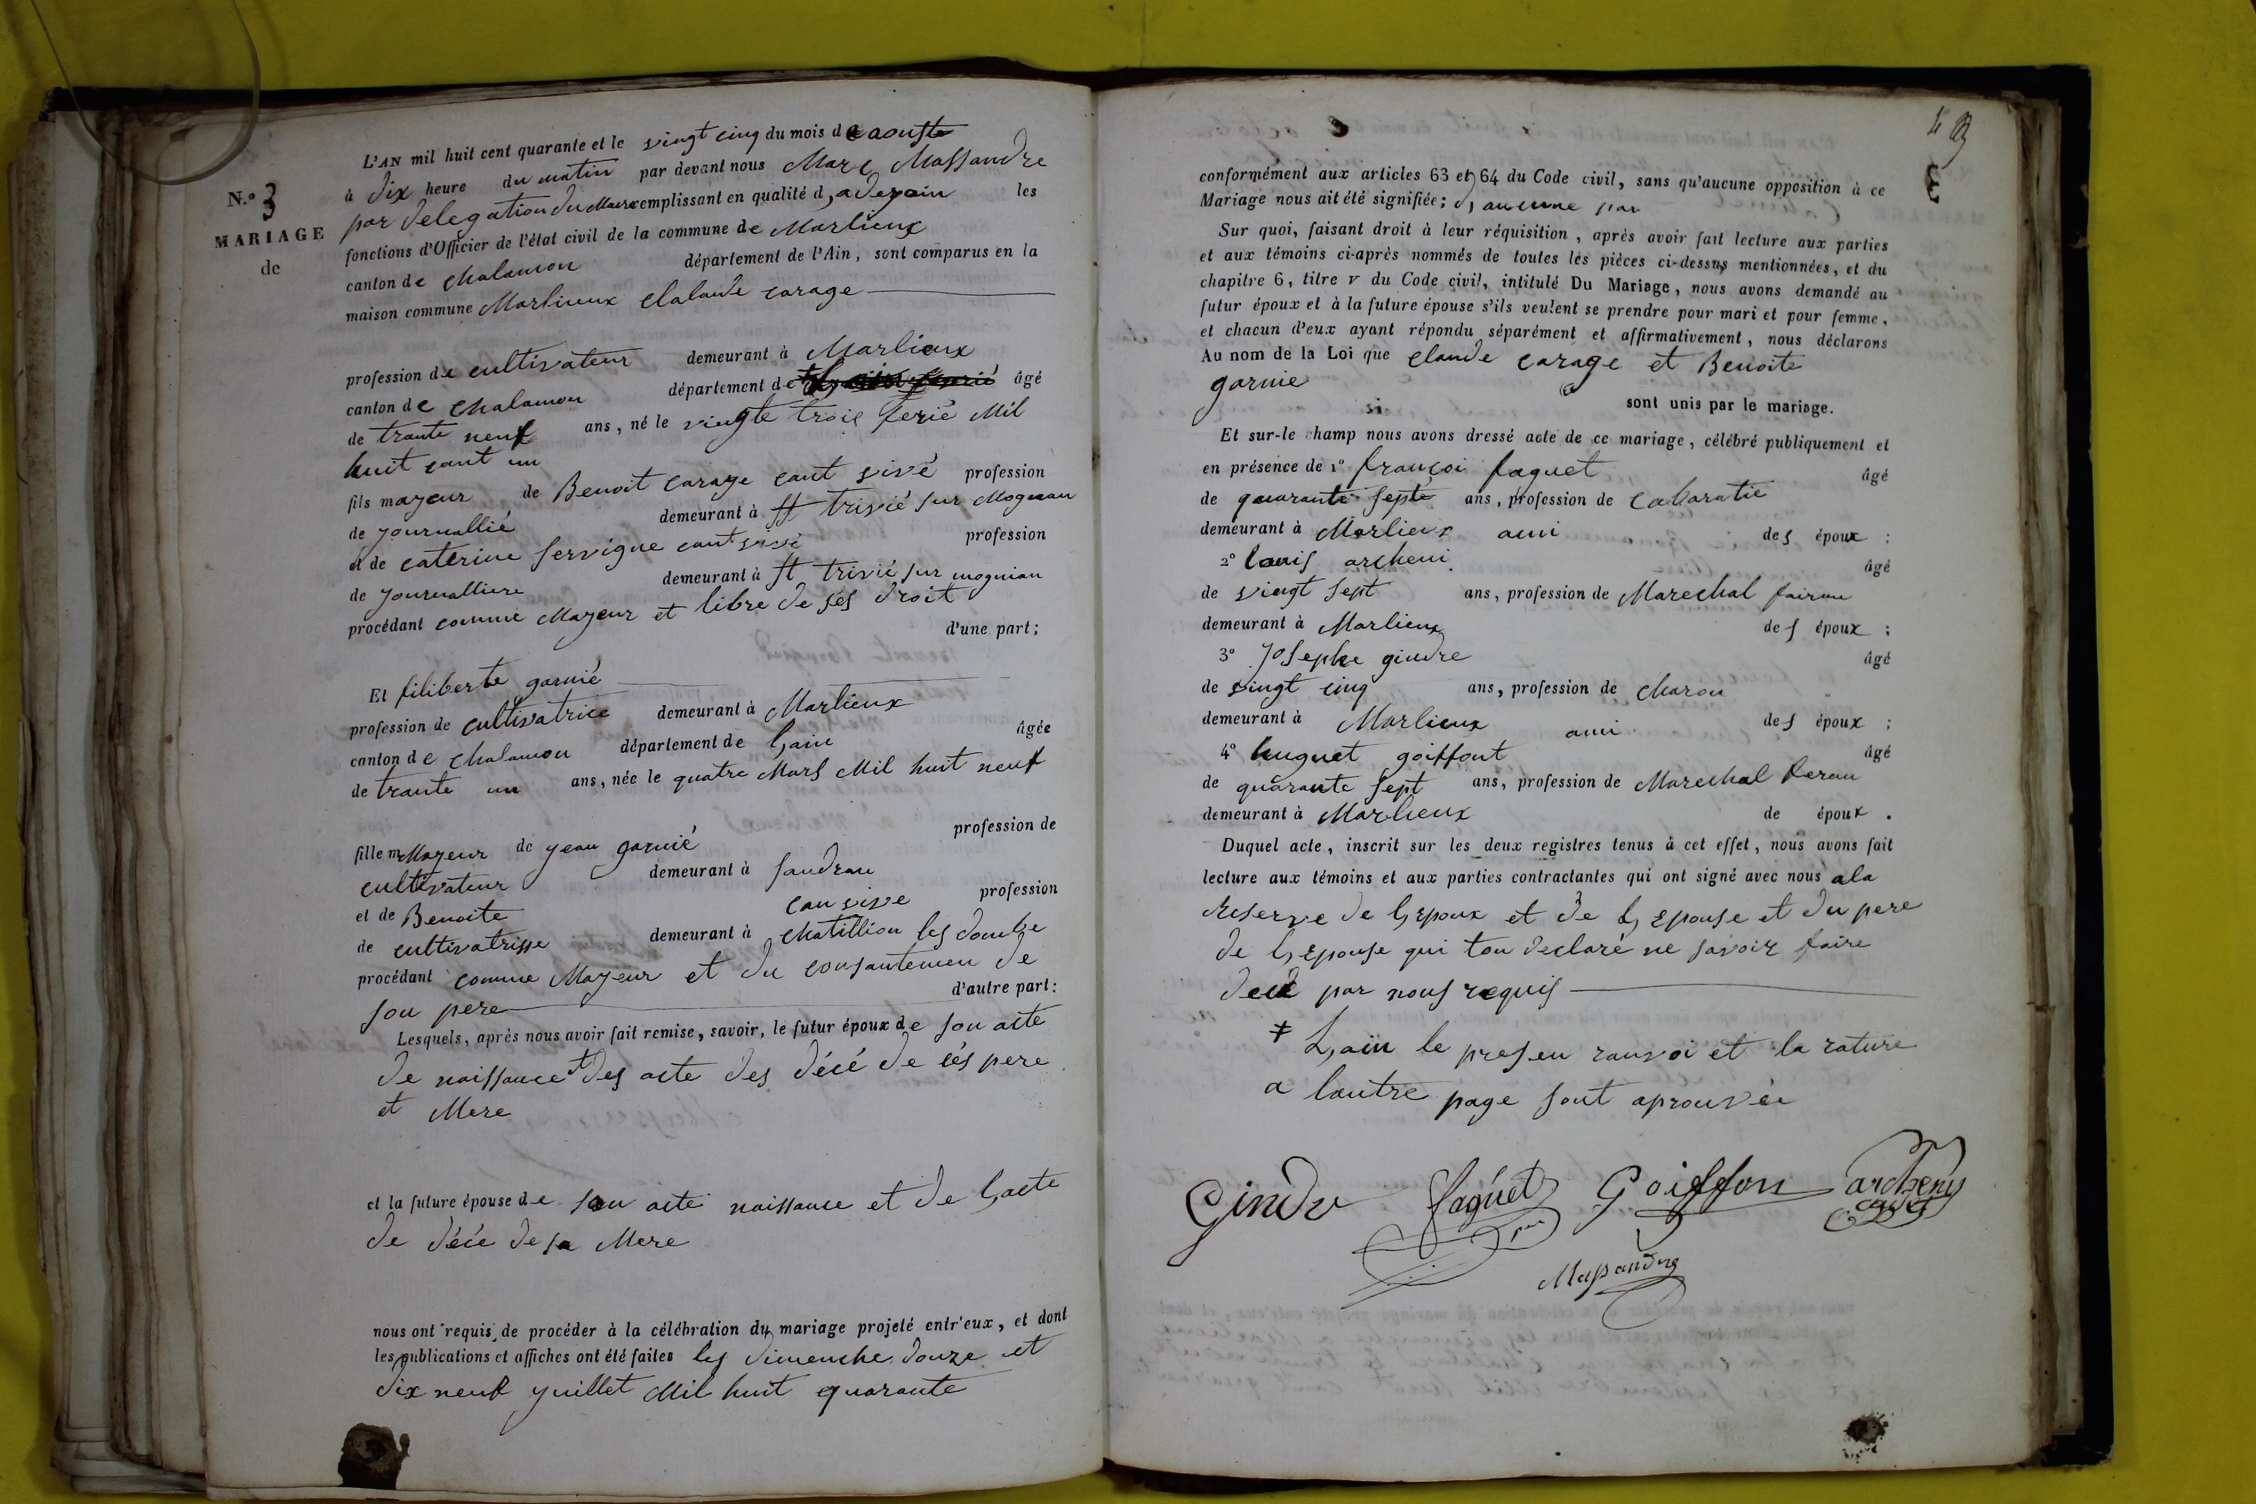 N.º 3
MARIAGE
de
L'AN mil huit cent quarante et le vingt cinq du mois de aouste
à dix heure du matin par devant nous Marc Massandre
par delegation du Maire remplissant en qualité d, adejoin les
fonctions d'Officier de l'état civil de la commune de Marlieux
canton de chalamon département de l'Ain, sont comparus en la
maison commune Marlieux clalaude carage
profession de cultivateur demeurant à Marlieux
canton de chalamon département de ŧ âgé
de trante neuf ans, né le vingte trois ferié Mil
huit cant un
fils mayeur de Benoit carage cant vivé profession
de journallié demeurant à St trivié sur Mognian
et de caterine servigne cant vivé profession
de journalliere demeurant à St trivié sur mognian
procédant comme Mayeur et libre de ses droit
d'une part;
Et filiberte garnié
profession de cultivatrice demeurant à Marlieux
canton de chalamon département de L,ain âgée
de trante un ans, née le quatre Mars Mil huit neuf
fille m Mayeur de jean garnié profession de
cultivateur demeurant à sandran
et de Benoite can vive profession
de cultivatrisse demeurant à chatillion les dombe
procédant comme Mayeur et du consantemen de
son pere d'autre part:
Lesquels, après nous avoir fait remise, savoir, le futur époux de son acte
de naissance + des acte des décé de cés pere
et Mere
et la future épouse de son acte naissance et de L,acte
de décé de sa Mere
nous ont requis de procéder à la célébration du mariage projeté entr'eux, et dont
les publications et affiches ont été faites les dimenche douze et
dix neuf juillet Mil huit quarante
43
conformément aux articles 63 et 64 du Code civil, sans qu'aucune opposition à ce
Mariage nous ait été signifiée; d, aucune par
Sur quoi, faisant droit à leur réquisition, après avoir fait lecture aux parties
et aux témoins ci-après nommés de toutes les pièces ci-dessus mentionnées, et du
chapitre 6, titre v du Code civil, intitulé Du Mariage, nous avons demandé au
futur époux et à la future épouse s'ils veulent se prendre pour mari et pour femme,
et chacun d'eux ayant répondu séparément et affirmativement, nous déclarons
Au nom de la Loi que claude carage et Benoite
garnie
sont unis par le mariage.
Et sur-le champ nous avons dressé acte de ce mariage, célébré publiquement et
en présence de 1º françoi faguet âgé
de quarante septe ans, profession de cabaratié
demeurant à Marlieux ami des époux ;
2º louis archeni âgé
de vingt sept ans, profession de Marechal fairan
demeurant à Marlieux des époux ;
3º Josephe gindre âgé
de vingt cinq ans, profession de charon
demeurant à Marlieux ami des époux ;
4º huguet goiffont âgé
de quarante sept ans, profession de Marechal feran
demeurant à Marlieux de époux .
Duquel acte, inscrit sur les deux registres tenus à cet effet, nous avons fait
lecture aux témoins et aux parties contractantes qui ont signé avec nous a la
reserve de L,epoux et de L,epouse et du pere
de L,epouse qui ton declaré ne savoir faire
decé par nous requis
ŧ L,ain le presen ranvoi et la rature
a lautre page sont aprouvée
Gindre Faguet Goiffon archeny
cadet
Massandre